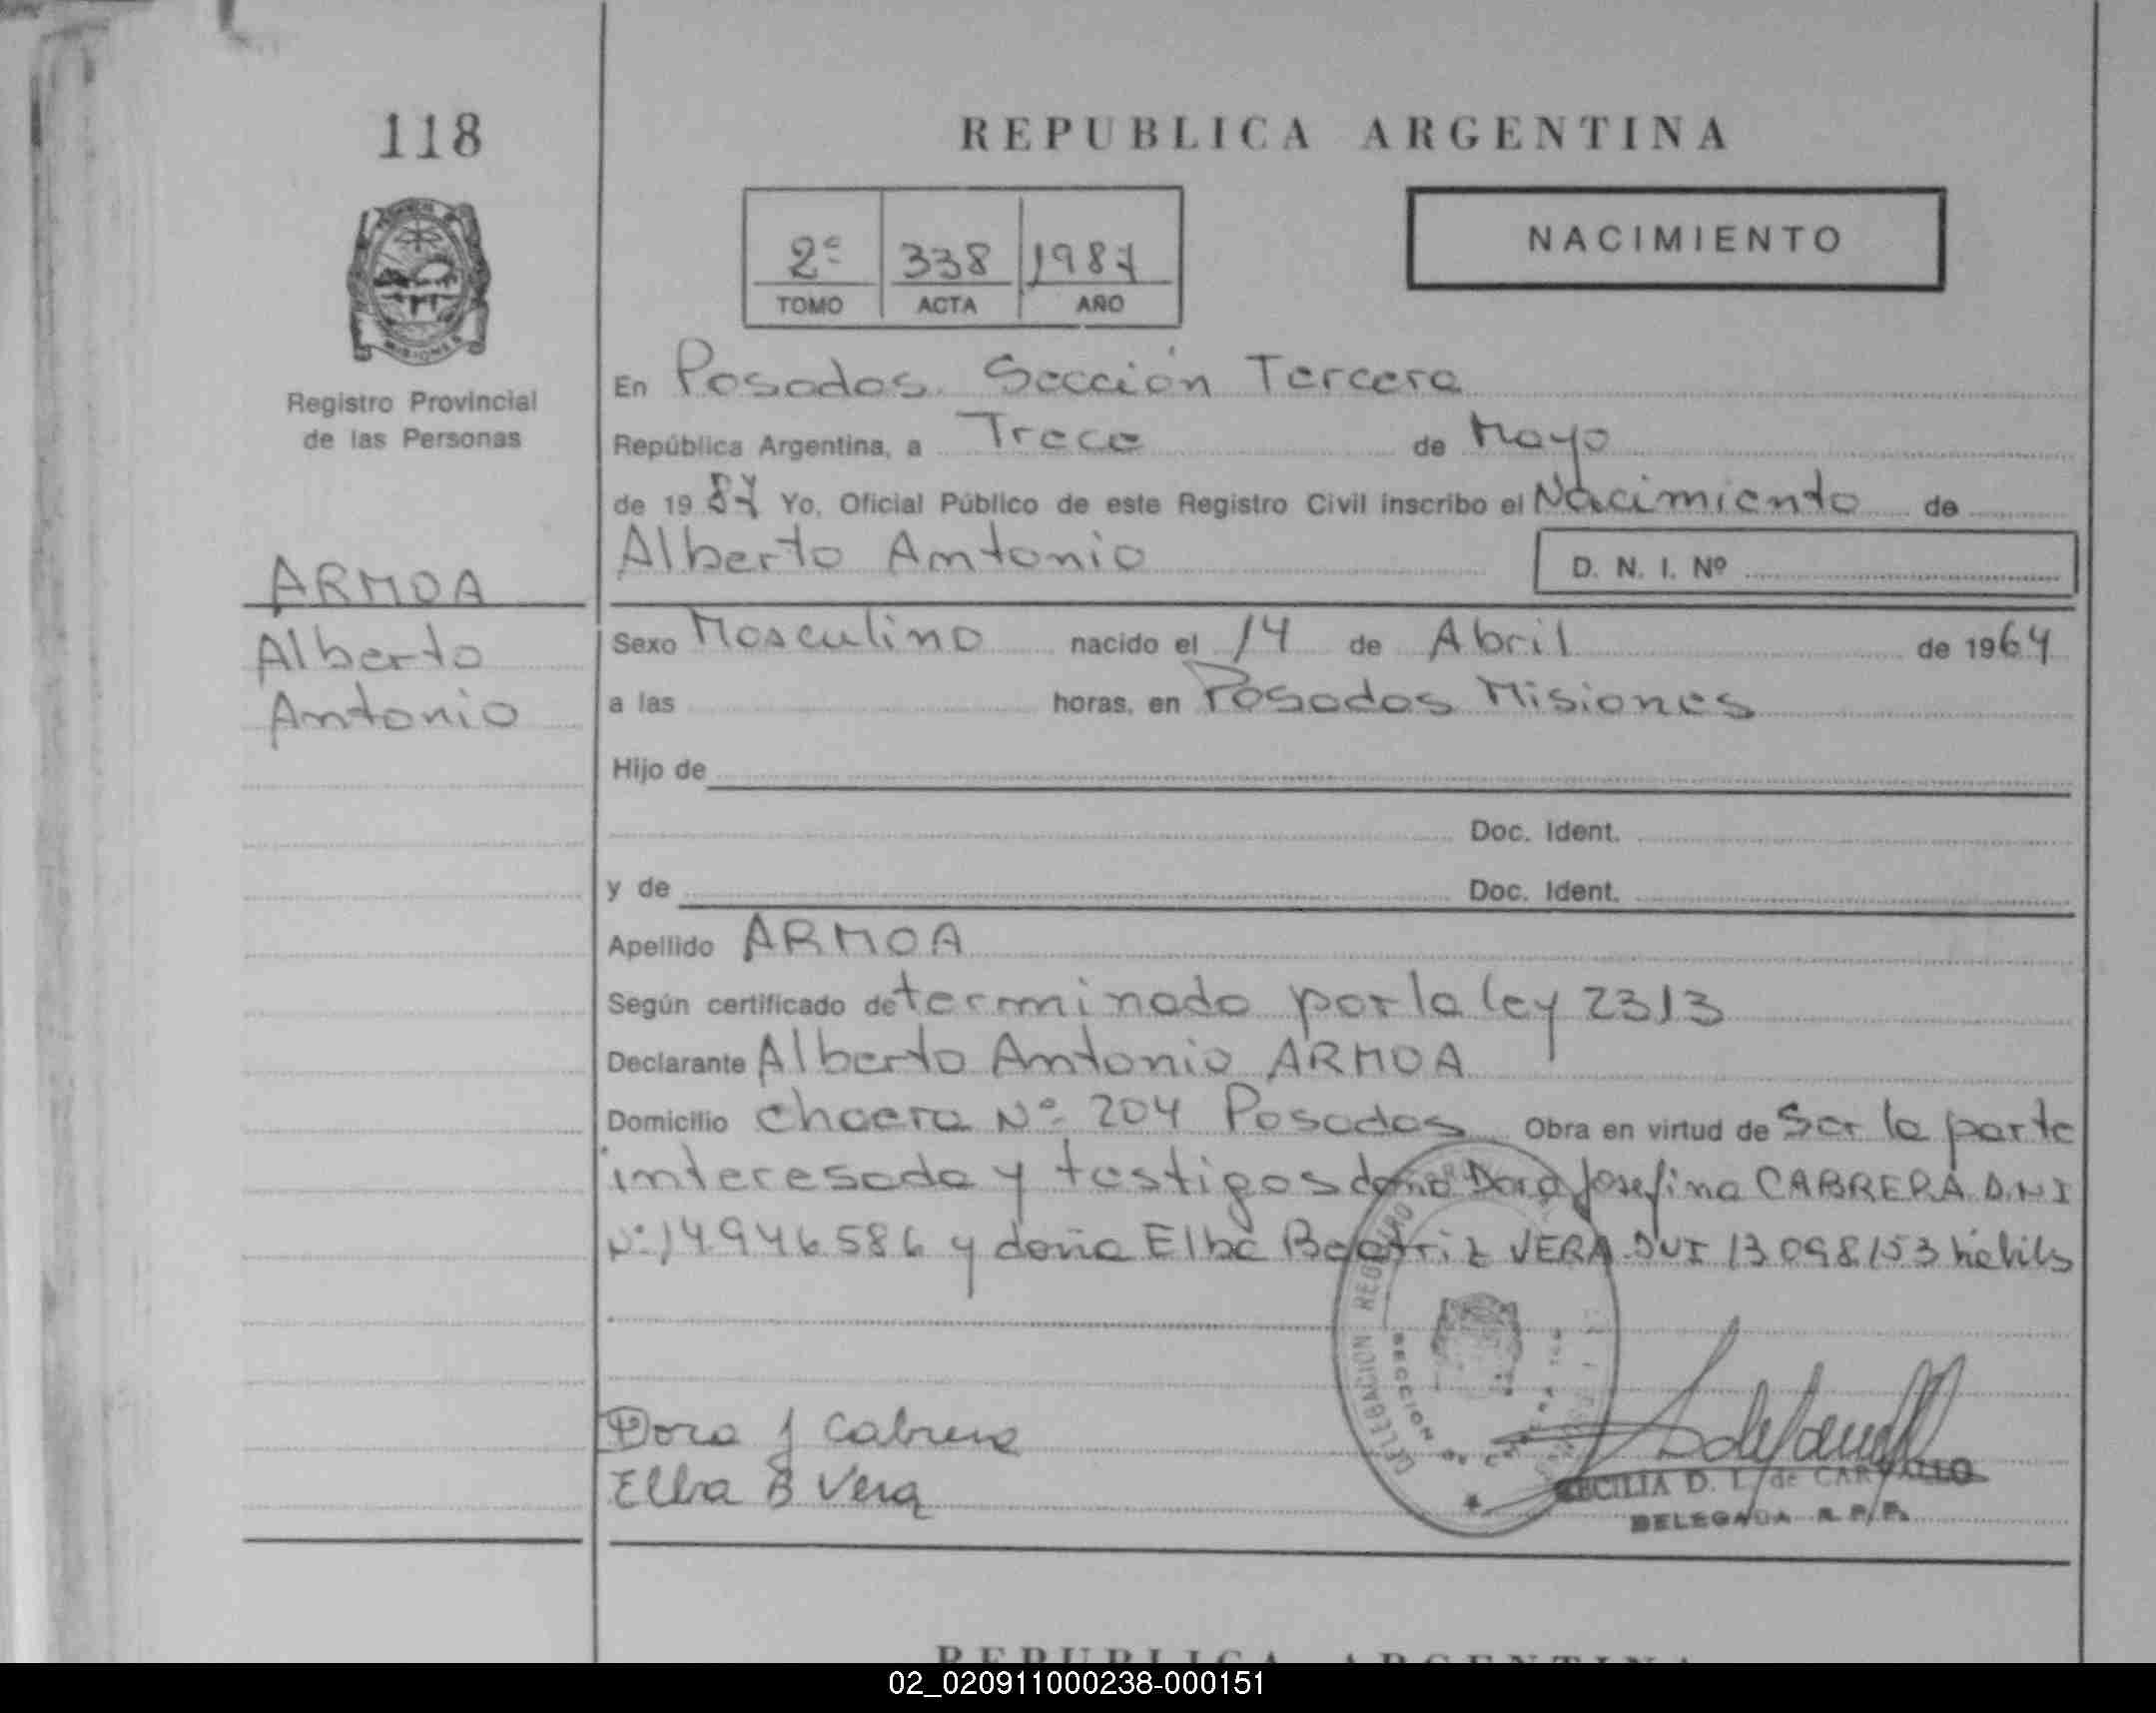 118
REPUBLICA ARGENTINA
2º 338 1987
TOMO ACTA AÑO
NACIMIENTO
MISIONES
Registro Provincial
de las Personas
En Posadas Sección Tercera
República Argentina, a Trece de Mayo
de 1987 Yo, Oficial Público de este Registro Civil inscribo el Nacimiento de
Alberto Antonio D. N. I. Nº
ARMOA
Alberto
Antonio
Sexo Masculino nacido el 14 de Abril de 1964
a las horas, en Posadas Misiones
Hijo de
Doc. Ident.
y de Doc. Ident.
Apellido ARMOA
Según certificado determinado por la ley 2313
Declarante Alberto Antonio ARMOA
Domicilio chacra Nº 204 Posadas Obra en virtud de Ser la parte
interesada y testigos doña Dora Josefina CABRERA D.N.I
Nº 14.946.586 y doña Elba Beatriz VERA DNI 13.098.153 hábiles
DELEGACION REGISTRO
SECCION
Dora J Cabrera
Elba B Vera
CECILIA D. L. de CARVALLO
DELEGADA R. P. P.
REPUBLICA ARGENTINA
02_020911000238-000151